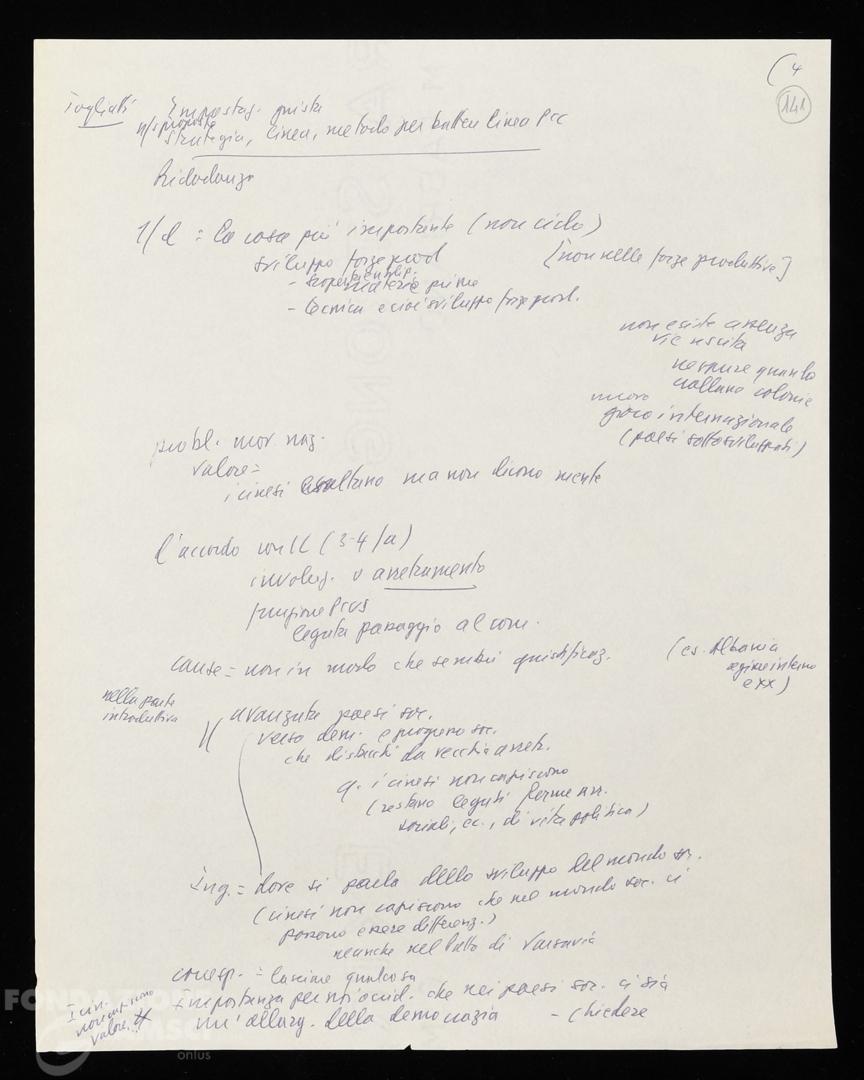 (4
141
Togliatti Impostaz. giusta
n/s proposte
strategia, linea, metodo per battere linea Pcc
Ridondanza
1/d = la cosa più importante (non ciclo)
sviluppo forze prod [non nelle forze produttive]
- scoperta
materie prime
- tecnica e cioè sviluppo forze prod.
non esiste assenza
vie uscita
neppure quando
crollano colonie
nuovo
gioco internazionale
(paesi sottosviluppati)
probl. mov. naz.
valore =
i cinesi esaltano ma non dicono niente
d'accordo con IL (3-4/a)
involuz. o arretramento
funzione Pcus
legata passaggio al com.
cause = non in modo che sembri giustificaz. (es. Albania
regime interno
e xx)
nella parte
introduttiva
avanzata paesi soc.
verso dem. e progresso soc.
che distacchi da vecchia arretr.
q. i cinesi non capiscono
(restano legati forme arr.
sociali, ec., di vita politica)
Ing. = dove si parla dello sviluppo del mondo soc.
(cinesi non capiscono che nel mondo soc. ci
possono essere differenz.)
neanche nel Patto di Varsavia
conesp. = lasciare qualcosa
Importanza per noi occid. che nei paesi soc. ci sia
un'allarg. della democrazia - Chiedere
I cin.
non capiscono
valore
FONDAZIONE
GRAMSCI
onlus